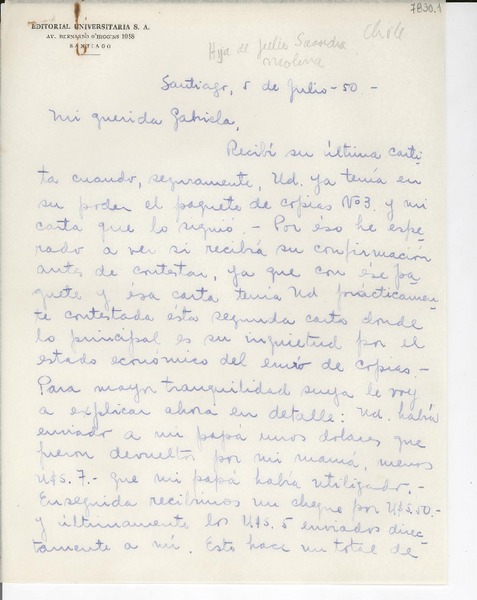 7830.1
EDITORIAL UNIVERSITARIA S. A.
AV. BERNARDO O'HIGGINS 1058
SANTIAGO
Hija de Julio Saavedra
Molina
Chile
Santiago, 5 de Julio - 50 -
Mi querida Gabriela,
Recibí su última carti-
ta cuando, seguramente, Ud. ya tenía en
su poder el paquete de copias Nº3. y mi
carta que lo siguió. - Por éso he espe-
rado a ver si recibía su confirmación
antes de contestar, ya que con ése pa-
quete y ésa carta tenía Ud prácticamen-
te contestada esta segunda carta donde
lo principal es su inquietud por el
estado económico del envío de copias. -
Para mayor tranquilidad suya le voy
a explicar ahora en detalle: Ud. había
enviado a mi papá unos dolares que
fueron devueltos por mi mamá, menos
U$S. 7.- que mi papá había utilizado. -
Enseguida recibimos un cheque por U$S. 50. -
y últimamente los U$S. 5 enviados direc-
tamente a mí. Esto hace un total de